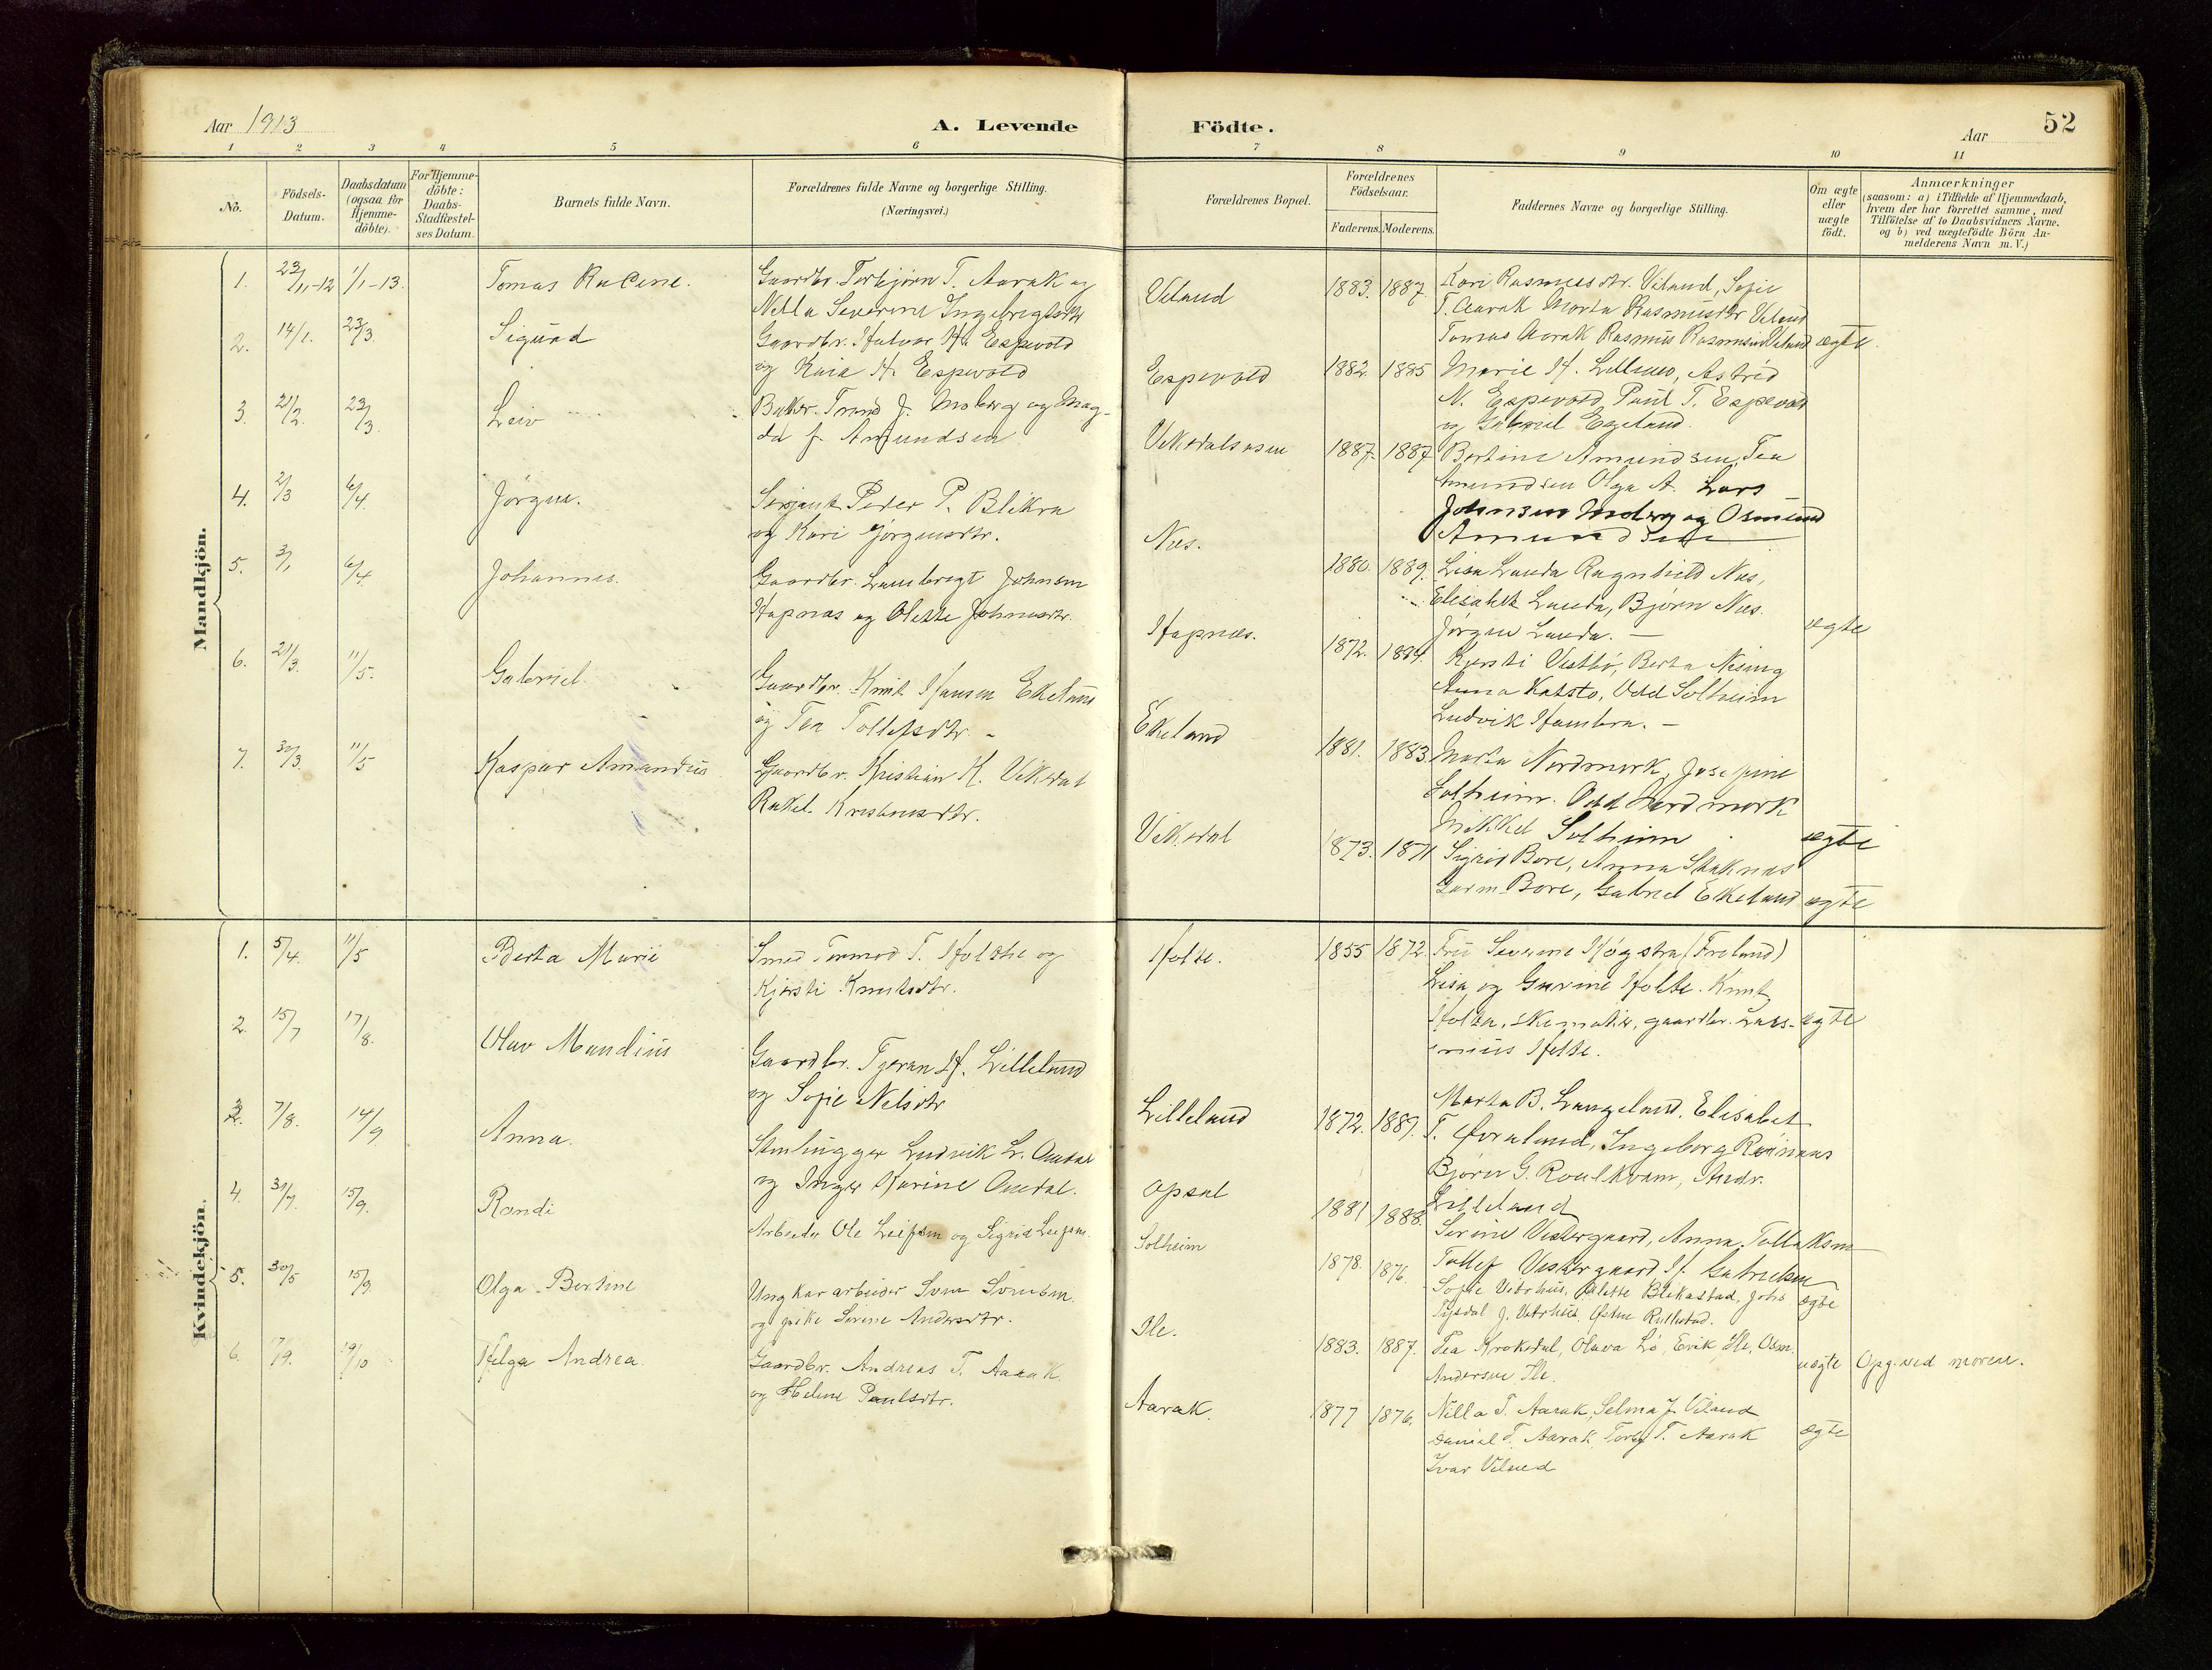 Aar 1913
A. Levende Födte.
Aar
52
1 2 3 4 5 6 7 8 9 10 11
No.
Födsels-
Datum.
Daabsdatum
(ogsaa for
Hjemme-
döbte).
For Hjemme-
döbte:
Daabs-
Stadfæstel-
ses Datum.
Barnets fulde Navn.
Forældrenes fulde Navne og borgerlige Stilling.
(Næringsvei.)
Forældrenes Bopæl.
Forældrenes
Födselsaar.
Faderens. Moderens.
Faddernes Navne og borgerlige Stilling.
Om ægte
eller
uægte
födt.
Anmærkninger
(saasom: a) i Tilfælde af Hjemmedaab,
hvem der har forrettet samme, med
Tilföielse af to Daabsvidners Navne.
og b) ved uægtefödte Börn An-
melderens Navn m. V.)
Mandkjön.
1. 23/11-12 1/1-13. Tomas
Gaardbr. Torbjörn T. Aarak og
Nella Severine Ingebrigtsdtr
Viland 1883. 1887.
Kari Rasmusdtr. Viland, Sofie
T. Aarak Marta Rasmusdtr Viland
Tomas Aarak Rasmus Rasmusen Viland ægte.
2. 14/1. 23/3. Sigurd
Gaardbr. Halvor H. Espevold
og Kaia H. Espevold
Espevold 1882. 1885
Marie H. Lilleland, Astrid
N. Espevold Paul T. Espevold
og Gabriel Egeland.
3. 21/2. 23/3. Leiv
Baker. Trond J. Moberg og Mag-
da f. Amundsen
Vikedalsosen 1887. 1887
Bertine Amundsen, Tea
Amundsen Olga A. Lars
Johnsen Moberg og Osmund
Amundsen
4. 2/3 6/4. Jörgen.
Serjant Peder P. Blikra
og Kari Jörgensdtr.
Næs. 1880. 1889.
Lisa Landa Ragnhild Næs,
Elisabet Landa, Björn Næs.
Jörgen Landa. ægte
5. 3/1 6/4 Johannes.
Gaardbr. Lambregt Johnsen
Hapnæs og Olette Johnsdtr.
Hapnæs. 1872. 1884.
Kjersti Vestbö, Berta
Anna Odd Solheim
Ludvik Hambra.
6. 21/3. 11/5. Gabriel.
Gaardbr. Knut Hansen Ekeland
og Tea Tollefsdtr.
Ekeland 1881. 1883.
Marta Nordmork, Josefine
Solheim. Odd Nordmork
Mikkel Solheim ægte
7. 30/3. 11/5 Kaspar Amandus
Gaardbr. Kristian K. Vikedal
Rakel. Kristensdtr.
Vikedal 1873. 1871
Sigrid Bore, Anna Staknæs
Gurin Bore, Gabriel Ekeland ægte
Kvindekjön.
1. 5/4. 11/5 Berta Marie
Smed Tormod T. Holthe og
Kjersti Knutsdtr.
Holte. 1855 1872.
Fru Severine Högstra (Froland)
Lisa og Gurine Holte. Knut
Holta, skomaker, gaardbr. Lars- ægte
emius Holte.
2. 15/7 17/8. Olav Mandius
Gaardbr. Tjeran H. Lilleland
og Sofie Nelsdtr
Lilleland 1872. 1887.
Marta B. Langeland. Elisabet
T. Övreland, Ingeborg
Björn G. Roulkvam, Andr.
Lilleland
3. 7/8. 14/9 Anna.
Stenhugger Ludvik L. Omdal
og Inger Karine Omdal.
Opsal 1881 1888.
Serine Vestergaard, Anna Tollaksen
Tollef Vestergaard H. Gabrielsen
4. 31/7. 15/9. Randi
Arbeider Ole Leifsen og Sigrid Leifsen.
Solheim 1878. 1876.
Sofie Vetrhus, Olette Blikastad, Johs
Tysdal J. Vetrhus, Östen Rullestad. ægte
5. 30/5 15/9. Olga Bertine
Ungkar arbeider Sven Svendsen
og pike Serine Andersdtr.
Ile. 1883. 1887.
Tea Krokedal, Olava Lö, Erik Ile, Osm.
Andersen Ile. uægte Opg. ved moren.
6. 1/9. 19/10 Helga Andrea.
Gaardbr. Andreas T. Aarak.
og Helene Paulsdtr.
Aarak. 1877 1876.
Nilla T. Aarak, Selma J. Viland
Daniel T. Aarak, Torbj. T. Aarak ægte
Ivar Viland